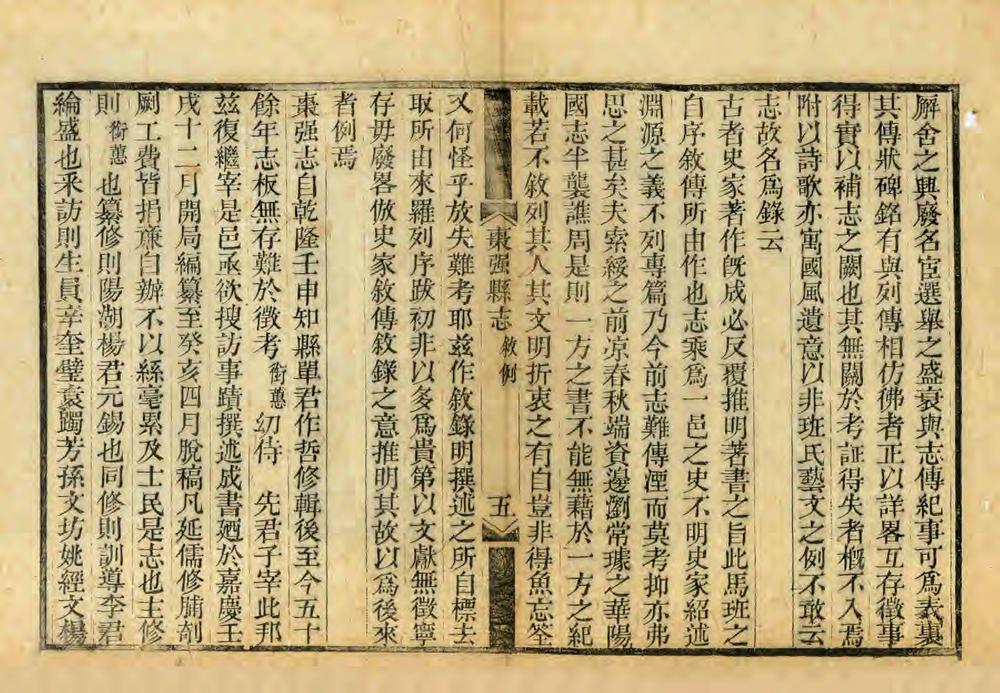 廨舍之興廢名宦選舉之盛衰與志傳紀事可爲表裏
其傳狀碑銘有與列傳相仿彿者正以詳畧互存徵事
得實以補志之闕也其無關於考証得失者槪不入焉
附以詩歌亦寓國風遺意以非班氏藝文之例不敢云
志故名爲錄云
古者史家著作旣成必反覆推明著書之旨此馬班之
自序敘傳所由作也志乘爲一邑之史不明史家紹述
淵源之義不列專篇乃今前志難傳湮而莫考抑亦弗
思之甚矣夫索綏之前凉春秋端資邊瀏常璩之華陽
國志半襲譙周是則一方之書不能無藉於一方之紀
載若不敘列其人其文明折衷之有自豈非得魚忘筌
棗强縣志 敘例 五
又何怪乎放失難考耶兹作敘錄明撰述之所自標去
取所由來羅列序跋初非以多爲貴第以文獻無徵寧
存毋廢畧倣史家敘傳敘錄之意推明其故以爲後來
者例焉
棗强志自乾隆壬申知縣單君作哲修輯後至今五十
餘年志板無存難於徵考銜蕙幼侍 先君子宰此邦
兹復繼宰是邑亟欲搜訪事蹟撰述成書廼於嘉慶壬
戌十二月開局編纂至癸亥四月脫稿凡延儒修脯剞
劂工費皆捐亷自辦不以絲毫累及士民是志也主修
則銜蕙也纂修則陽湖楊君元錫也同修則訓導李君
綸盛也采訪則生員辛奎璧袁躅芳孫文坊姚經文楊